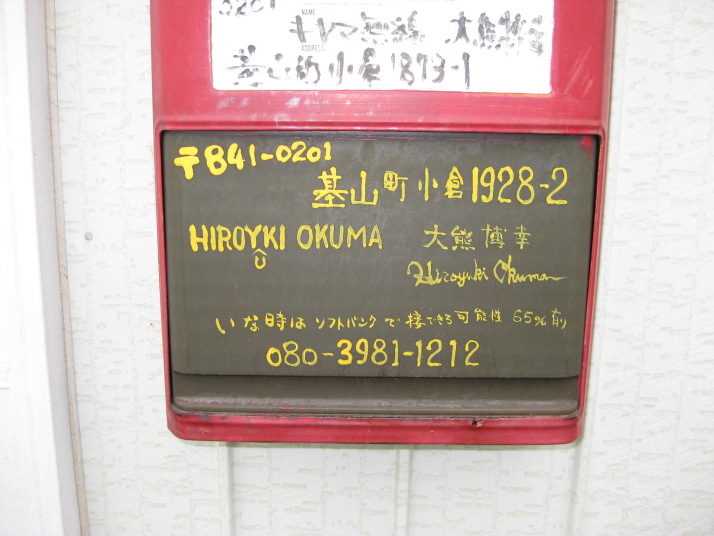 0201
NAME
キヤマ無線 大熊博幸
ADDRESS
基山町小倉1873-1
〒841-0201
基山町小倉1928-2
HIROYKI OKUMA 大熊博幸
U
Hiroyuki Okuma
いな時はソフトバンクで接できる可能性65%有り
080-3981-1212